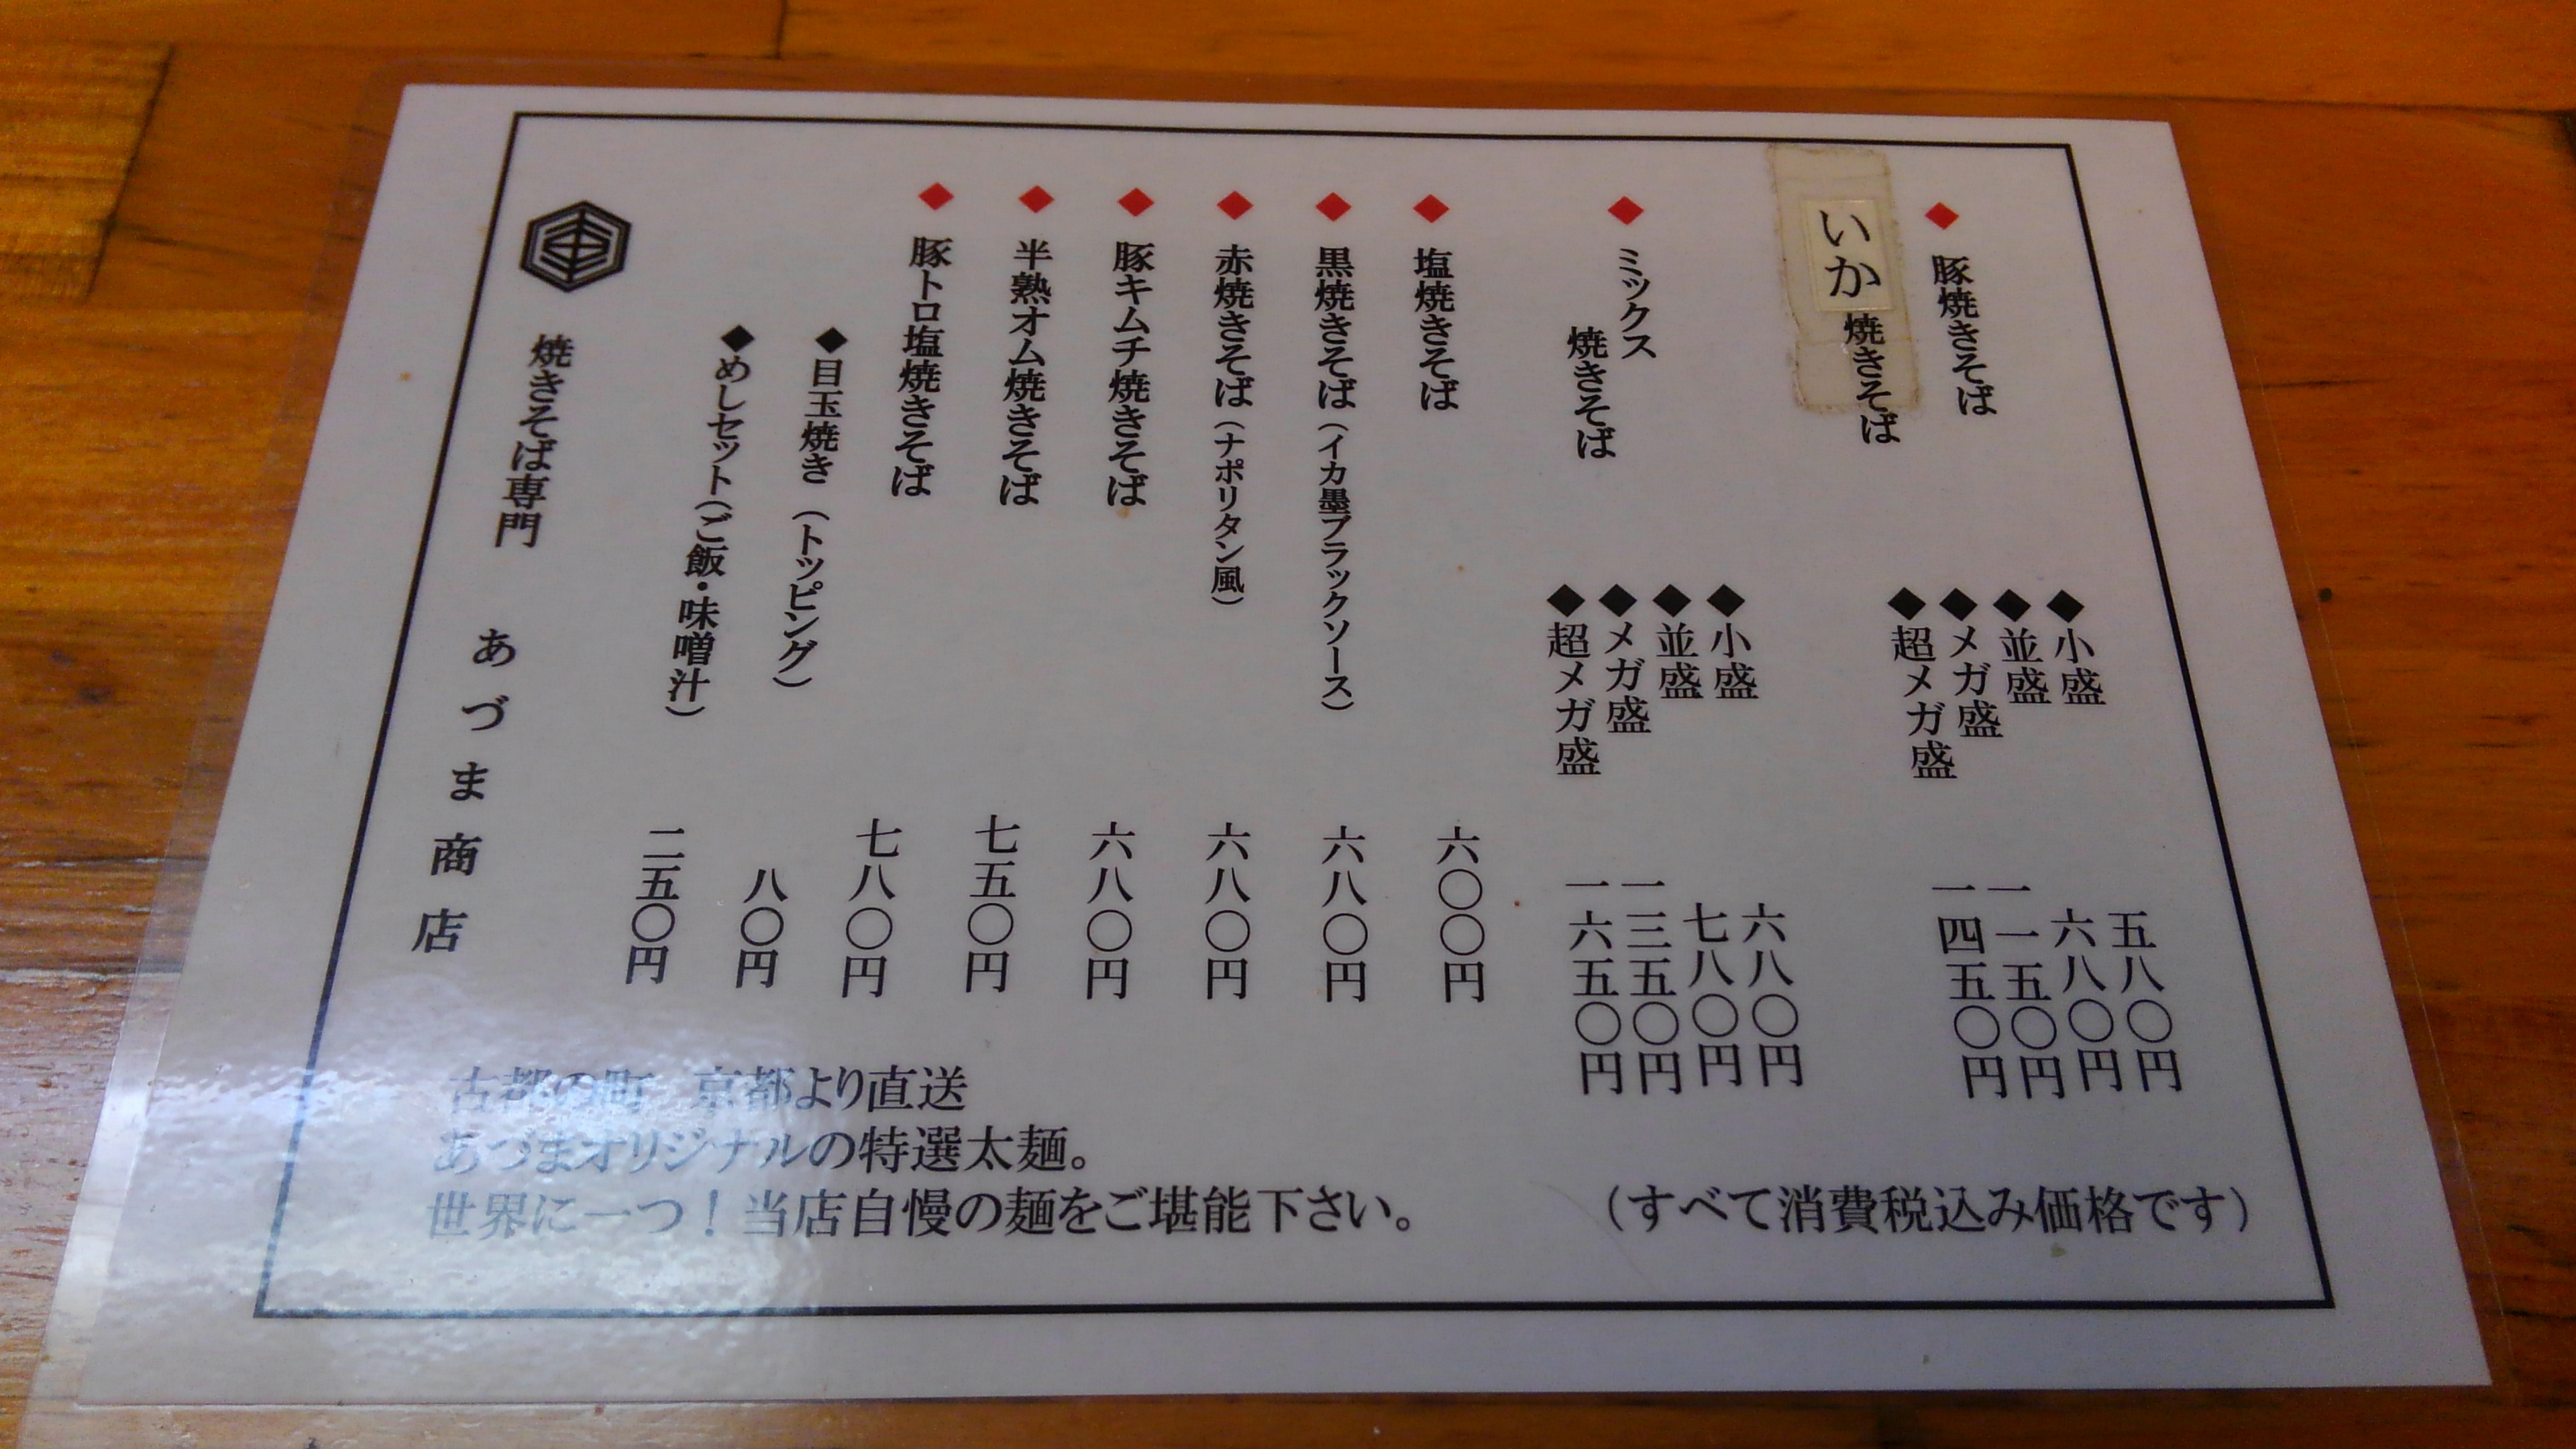 ◆ 豚焼きそば
いか焼きそば
◆小盛 五八〇円
◆並盛 六八〇円
◆メガ盛 一一五〇円
◆超メガ盛 一四五〇円
◆ ミックス
焼きそば
◆小盛 六八〇円
◆並盛 七八〇円
◆メガ盛 一三五〇円
◆超メガ盛 一六五〇円
◆ 塩焼きそば 六〇〇円
◆ 黒焼きそば（イカ墨ブラックソース） 六八〇円
◆ 赤焼きそば（ナポリタン風） 六八〇円
◆ 豚キムチ焼きそば 六八〇円
◆ 半熟オム焼きそば 七五〇円
◆ 豚トロ塩焼きそば 七八〇円
◆目玉焼き（トッピング） 八〇円
◆めしセット（ご飯・味噌汁） 二五〇円
焼きそば専門 あづま商店
古都の町 京都より直送
あづまオリジナルの特選太麺。
世界に一つ！当店自慢の麺をご堪能下さい。
（すべて消費税込み価格です）